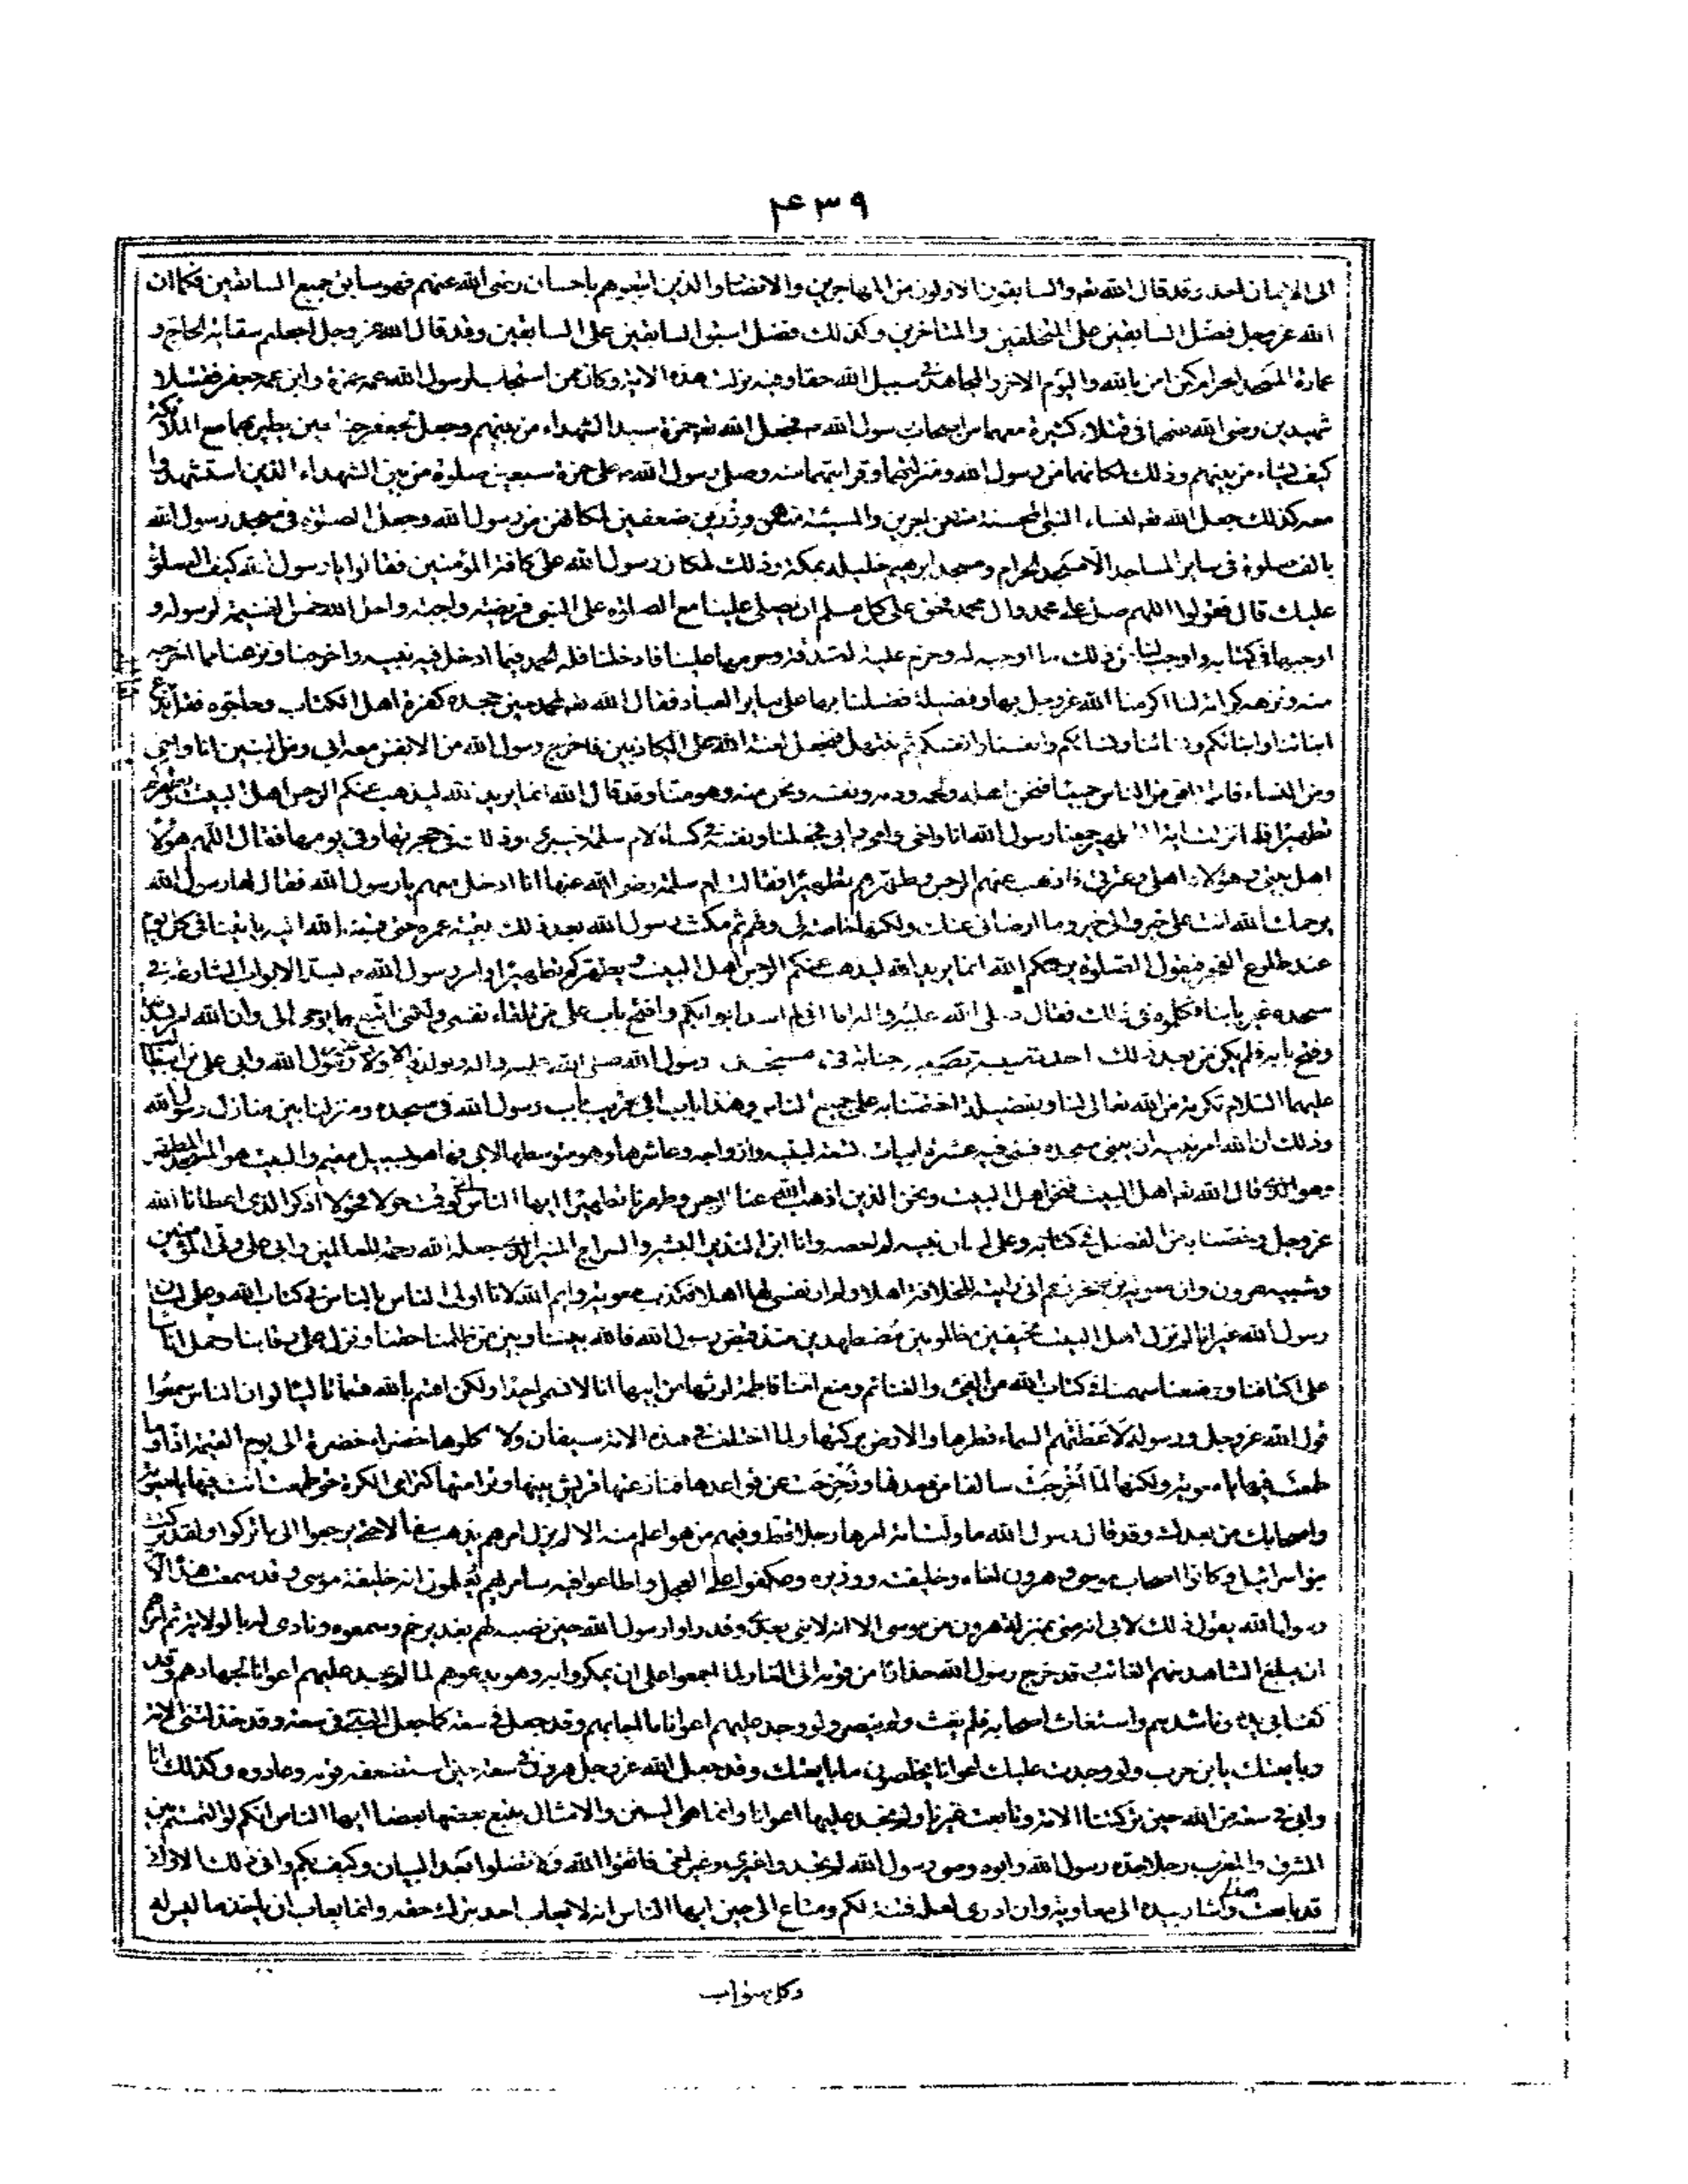 ۴۳۹
الى الايمان احد وقد قال الله تعم والسابقون الاولون من المهاجرين والانصار والذين اتبعوهم باحسان رضى الله عنهم فهو سابق جميع السابقين فكما ان
الله عز وجل فضل السابقين على المتخلفين والمتاخرين وكذلك فضل اسبق السابقين على السابقين وقد قال الله عز وجل اجعلتم سقاية الحاج و
عمارة المسجد الحرام كمن امن بالله واليوم الاخر والمجاهد فى سبيل الله حقا وفيه نزلت هذه الاية وكان ممن استجاب لرسول الله عمه حمزة وابن عمه جعفر فقتلا
شهيدين رضى الله عنهما فى قتلاء كثيرة معهما من اصحاب رسول الله فجعل الله تعم حمزة سيد الشهداء من بينهم وجعل لجعفر جناحين يطير بهما مع الملائكة
كيف يشاء من بينهم وذلك لمكانهما من رسول الله ومنزلتهما وقرابتهما منه وصلى رسول الله على حمزة سبعين صلوة من بين الشهداء الذين استشهدوا
معه وكذلك جعل الله تعم لنساء النبى المحسنة منهن اجرين والمسيئة منهن وزرين ضعفين لمكانهن من رسول الله وجعل الصلوة فى مسجد رسول الله
بالف صلوة فى ساير المساجد الا مسجد الحرام ومسجد ابرهيم خليله بمكة وذلك لمكان رسول الله على كافة المؤمنين فقالوا يا رسول الله كيف الصلوة
عليك قال فقولوا اللهم صل على محمد وال محمد فحق على كل مسلم ان يصلى علينا مع الصلوة على النبى فريضة واجبة واحل الله خمس الغنيمة لرسوله و
اوجبها فى كتابه واوجب لنا من ذلك ما اوجب له وحرم عليه الصدقة وحرمها علينا فادخلنا فله الحمد فيما ادخل فيه نبيه واخرجنا ونزهنا مما اخرجه
منه ونزهه كرامة لنا اكرمنا الله عز وجل بها وفضيلة فضلنا بها على ساير العباد فقال الله تعم لمحمد حين جحده كفرة اهل الكتاب وحاجوه فقل تعالوا ندع
ابنائنا وابنائكم ونسائنا ونسائكم وانفسنا وانفسكم ثم نبتهل فنجعل لعنة الله على الكاذبين فاخرج رسول الله من الانفس معه ابى ومن البنين انا واخى
ومن النساء فاطمة امى من الناس جميعا فنحن اهله ولحمه ودمه ونفسه ونحن منه وهو منا وقد قال الله انما يريد الله ليذهب عنكم الرجس اهل البيت ويطهركم
تطهيرا فلما نزلت اية التطهير جمعنا رسول الله انا واخى وامى وابى فجعلنا ونفسه فى كساء لام سلمة خيبرى وذلك فى حجرتها وفى يومها فقال اللهم هؤلاء
اهل بيتى وهؤلاء اهلى وعترتى فاذهب عنهم الرجس وطهرهم تطهيرا فقالت ام سلمة رضى الله عنها انا ادخل معهم يا رسول الله فقال لها رسول الله
يرحمك الله انت على خير والى خير وما ارضانى عنك ولكنها خاصة لى ولهم ثم مكث رسول الله بعد ذلك بقية عمره حتى قبضه الله اليه ياتينا فى كل يوم
عند طلوع الفجر فيقول الصلوة يرحمكم الله انما يريد الله ليذهب عنكم الرجس اهل البيت ويطهركم تطهيرا وامر رسول الله بسد الابواب الشارعة فى
مسجده غير بابنا فكلموه فى ذلك فقال صلى الله عليه واله اما انى لم اسد ابوابكم وافتح باب على من تلقاء نفسى ولكنى اتبع ما يوحى الى وان الله امر بسدها
وفتح بابه فلم يكن من بعد ذلك احد تصيبه جنابة فى مسجد رسول الله صلى الله عليه واله ويولد فيه الاولاد غير رسول الله وابى على بن ابيطالب
عليهما السلام تكرمة من الله تعالى لنا وتفضيلا اختصنا به على جميع الناس وهذا باب ابى قرين باب رسول الله فى مسجده ومنزلنا بين منازل رسول الله
وذلك ان الله امر نبيه ان يبنى مسجده فبنى فيه عشرة ابيات تسعة لبنيه وازواجه وعاشرها وهو متوسطها لابى فها هو بسبيل مقيم والبيت هو المسجد المطهر
وهو الذى قال الله تعم اهل البيت فنحن اهل البيت ونحن الذين اذهب الله عنا الرجس وطهرنا تطهيرا ايها الناس انى لو قمت حولا فحولا اذكر الذى اعطانا الله
عز وجل وخصنا به من الفضل فى كتابه وعلى لسان نبيه لم احصه وانا ابن النذير البشير والسراج المنير الذى جعله الله رحمة للعالمين وابى على ولى المؤمنين
وشبيه هرون وان معوية بن صخر زعم انى رايته للخلافة اهلا ولم ار نفسى لها اهلا فكذب معوية وايم الله لانا اولى الناس بالناس فى كتاب الله وعلى لسان
رسول الله غير انا لم نزل اهل البيت مخيفين مظلومين مضطهدين منذ قبض رسول الله فالله بيننا وبين من ظلمنا حقنا ونزل على رقابنا وحمل الناس
على اكتافنا ومنعنا سهمنا فى كتاب الله من الفئ والغنائم ومنع امنا فاطمة ارثها من ابيها انا لا نسمى احدا ولكن اقسم بالله قسما تاليا لو ان الناس سمعوا
قول الله عز وجل ورسوله لاعطتهم السماء قطرها والارض بركتها ولما اختلف فى هذه الامة سيفان ولا كلوها خضراء خضرة الى يوم القيمة اذا وما
طمعت فيها يا معوية ولكنها لما اخرجت سالفا من معدنها وزحزحت عن قواعدها تنازعتها قريش بينها وترامتها كترامى الكرة حتى طمعت انت فيها يا معوية
واصحابك من بعدك وقد قال رسول الله ما ولت امة امرها رجلا قط وفيهم من هو اعلم منه الا لم يزل امرهم يذهب سفالا حتى يرجعوا الى ما تركوا ولقد تركت
بنو اسرائيل وكانوا اصحاب موسى هرون اخاه وخليفته ووزيره وعكفوا على العجل واطاعوا فيه سامريهم يعلمون انه خليفة موسى وقد سمعت هذه الامة
رسول الله يقول ذلك لابى انه منى بمنزلة هرون من موسى الا انه لا نبى بعدى وقد راوا رسول الله حين نصبه لهم بغدير خم وسمعوه ونادى له بالولاية ثم امرهم
ان يبلغ الشاهد منهم الغائب وقد خرج رسول الله حذارا من قومه الى الغار لما اجمعوا على ان يمكروا به وهو يدعوهم لما لم يجد عليهم اعوانا لجاهدهم وقد
كف ابى يده وناشدهم واستغاث اصحابه فلم يغث ولم ينصر ولو وجد عليهم اعوانا ما اجابهم وقد جعل فى سعة كما جعل النبى فى سعة وقد خذلتنى الامة
وبايعتك يا بن حرب ولو وجدت عليك اعوانا يخلصون ما بايعتك وقد جعل الله عز وجل هرون فى سعة حين استضعفه قومه وعادوه وكذلك انا
وابى فى سعة من الله حين تركتنا الامة وتابعت غيرنا ولم نجد عليها اعوانا وانما هى السنن والامثال يتبع بعضها بعضا ايها الناس انكم لو التمستم بين
المشرق والمغرب رجلا جده رسول الله وابوه وصى رسول الله لم تجدوا غيرى وغير اخى فاتقوا الله ولا تضلوا بعد البيان وكيف بكم وانى ذلك الا وانى
قد بايعت هذا واشار بيده الى معاوية وان ادرى لعله فتنة لكم ومتاع الى حين ايها الناس انه لا يعاب احد بترك حقه وانما يعاب ان ياخذ ما ليس له
وكل صواب